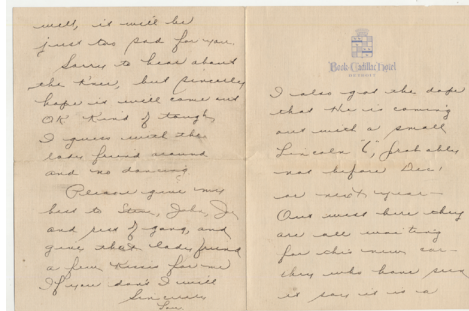 well, it will be
just too bad for you.
Sorry to hear about
the knee, but sincerely
hope it will come out
OK Kind of tough,
I guess with the
lady friend around
and no dancing
Please give my
best to Steve, Jake, Jr
and rest of gang, and
give that lady friend
a few kisses for me
If you don't I will
Sincerely
Book-Cadillac Hotel
DETROIT
I also got the dope
that He is coming
out with a small
Lincoln "6", probably
not before Dec.
or next year—
Out west here they
are all waiting
for this new car—
they who have seen
it say it is a